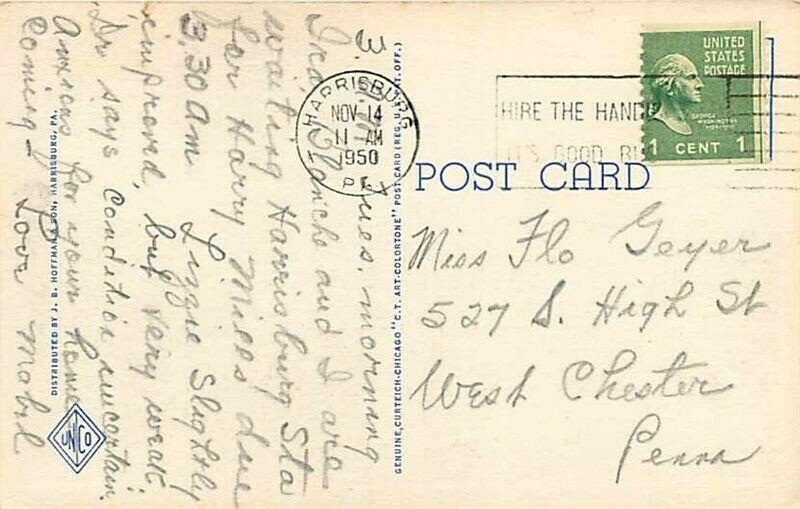 3.30 Tues. morning
Ira, Blanche and I are
waiting Harrisburg Sta
for Harry Mills due
3.30 am. Lizzie Slightly
improved, but very weak
Dr says, condition uncertain,
Anxious for your home
coming
Love Mabel
DISTRIBUTED BY J. B. HOFFMAN & SON, HARRISBURG, PA.
UNICO
GENUINE, CURTEICH-CHICAGO "C.T. ART-COLORTONE" POST CARD (REG. U.S. PAT. OFF.)
HARRISBURG
NOV 14
11 AM
1950
PA
HIRE THE HAND
IT'S GOOD BU
UNITED
STATES
POSTAGE
GEORGE
WASHINGTON
1 CENT 1
POST CARD
Miss Flo Geyer
527 S. High St
West Chester
Penna